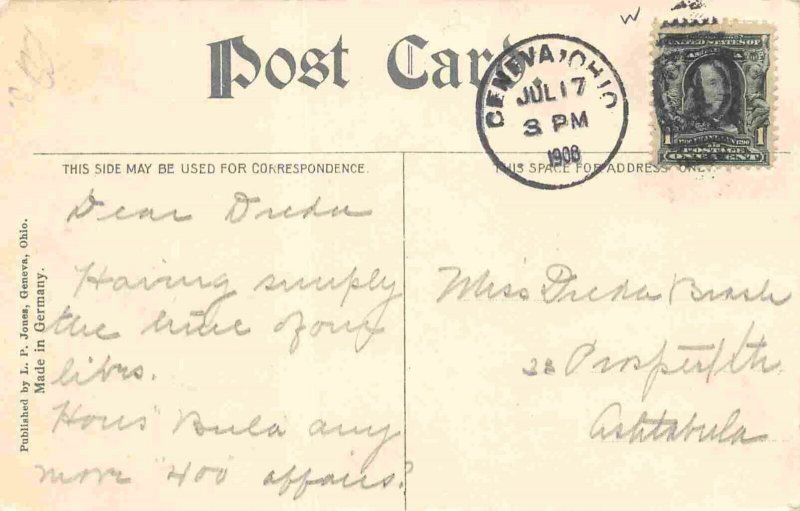 Post Card
GENEVA, OHIO.
JUL 17
3 PM
1908
UNITED STATES OF
AMERICA
1 FRANKLIN 1
POSTAGE
ONE CENT
THIS SIDE MAY BE USED FOR CORRESPONDENCE.
THIS SPACE FOR ADDRESS ONLY.
Published by L. P. Jones, Geneva, Ohio.
Made in Germany.
Dear Dreda
Having simply
the time of our
Hows Bula any
more "400" affairs?
Miss Dreda
Prospect St.
Ashtabula